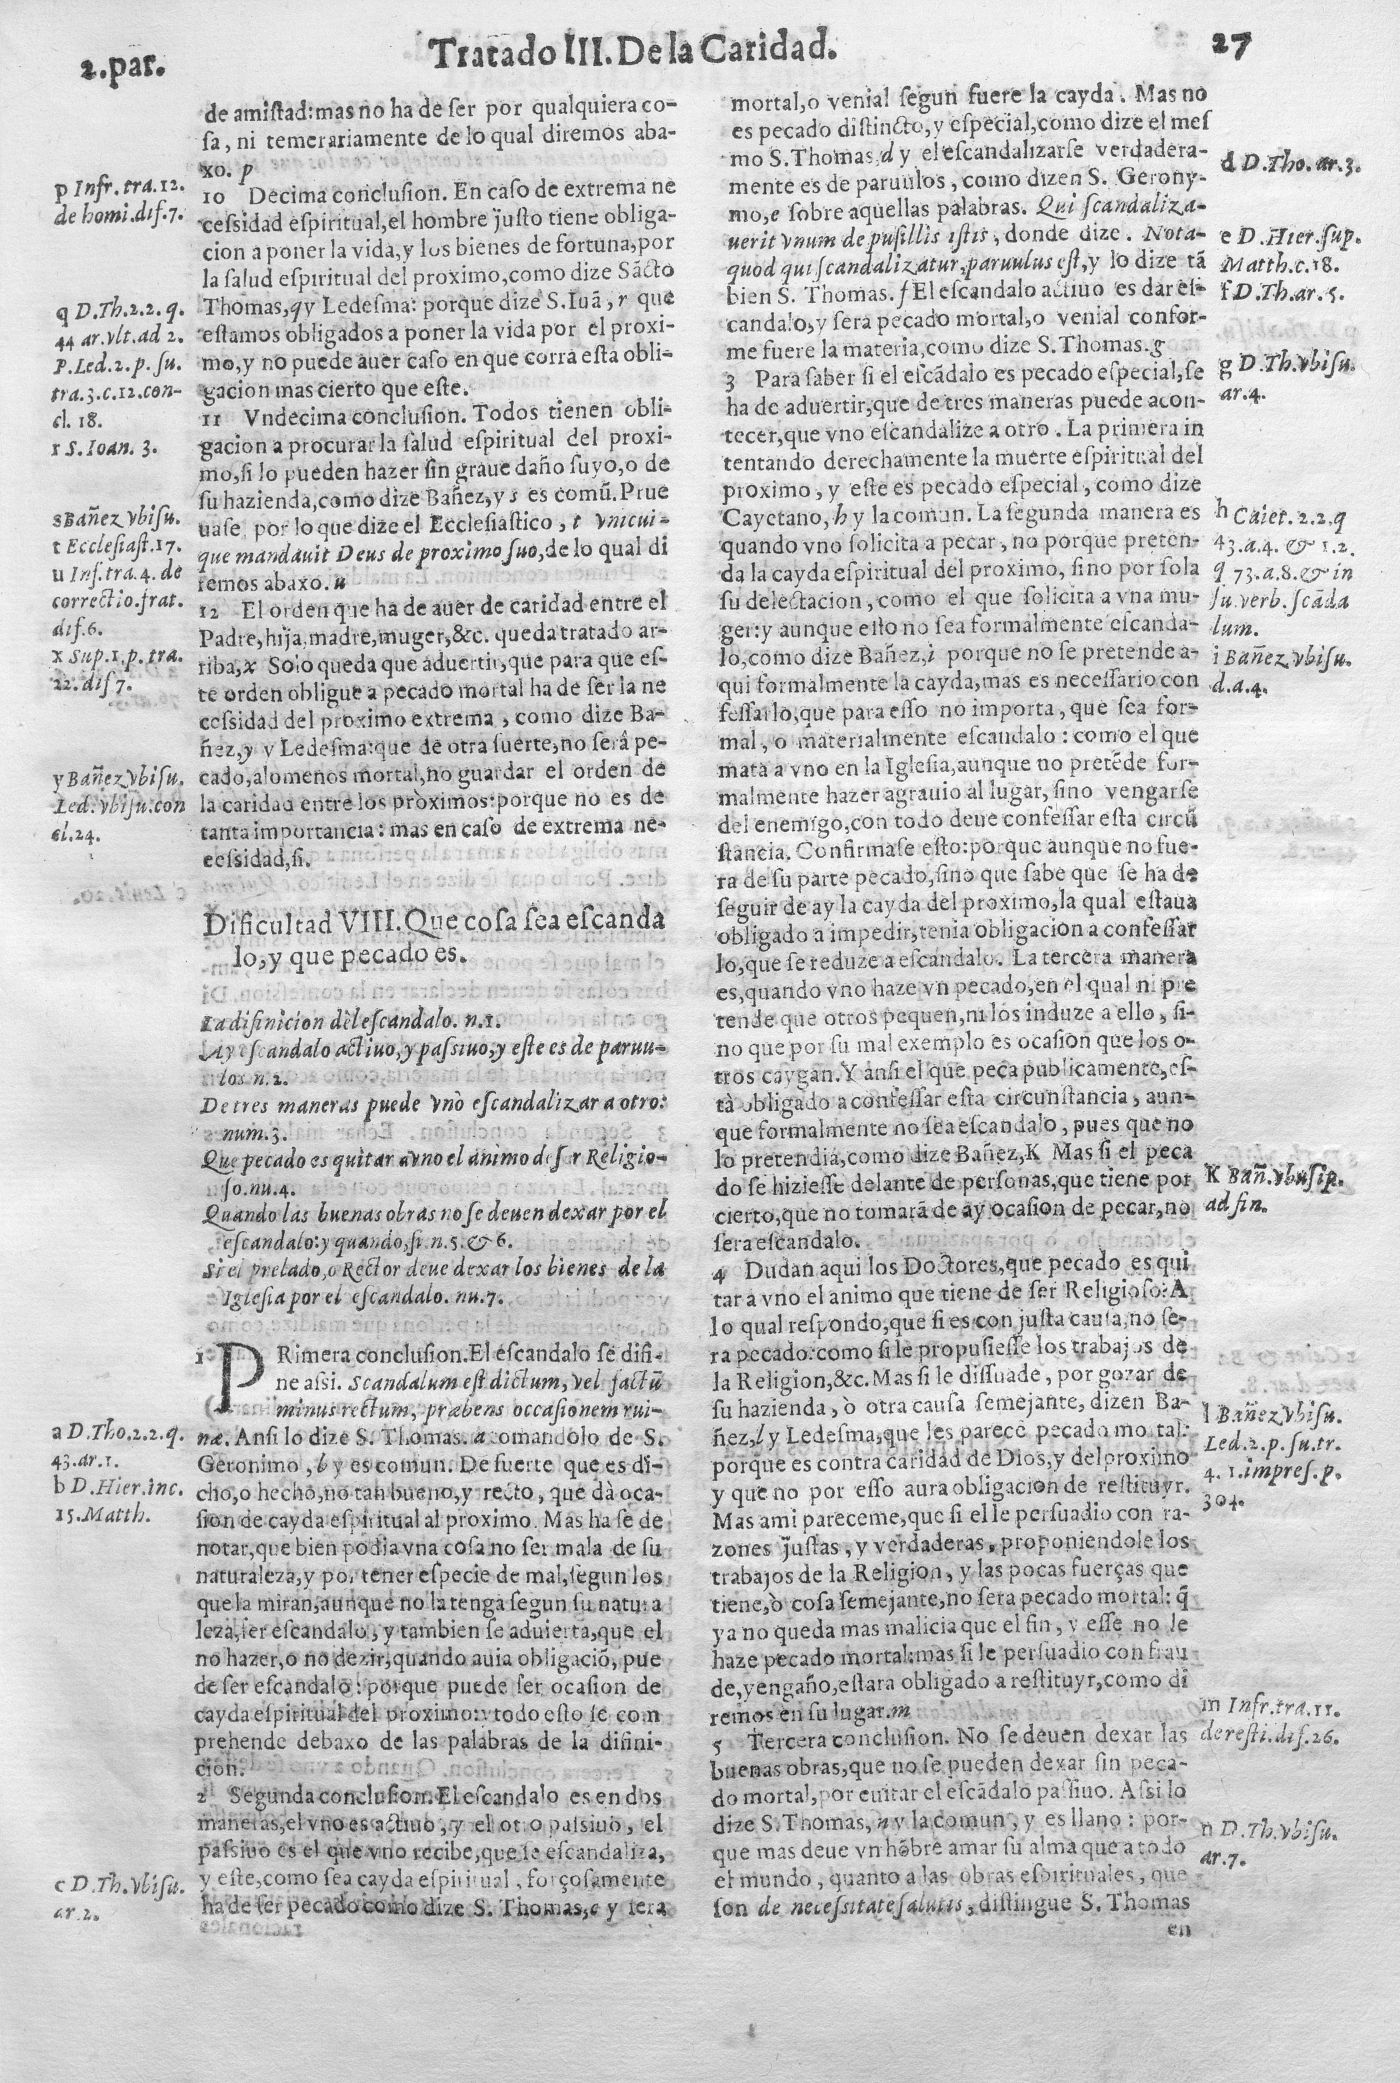 2.par.
Tratado III. De la Caridad.
27
de amistad: mas no ha de ser por qualquiera co-
sa, ni temerariamente de lo qual diremos aba-
xo. p
10 Decima conclusion. En caso de extrema ne
cessidad espiritual, el hombre justo tiene obliga-
cion a poner la vida, y los bienes de fortuna, por
la salud espiritual del proximo, como dize Sãcto
Thomas, q y Ledesma: porque dize S. Iuã, r que
estamos obligados a poner la vida por el proxi-
mo, y no puede auer caso en que corra esta obli-
gacion mas cierto que este.
11 Vndecima conclusion. Todos tienen obli-
gacion a procurar la salud espiritual del proxi-
mo, si lo pueden hazer sin graue daño suyo, o de
su hazienda, como dize Bañez, y s es comũ. Prue
uase por lo que dize el Ecclesiastico, t vnicui-
que mandauit Deus de proximo suo, de lo qual di
remos abaxo. u
12 El orden que ha de auer de caridad entre el
Padre, hija, madre, muger, &c. queda tratado ar-
riba, x Solo queda que aduertir, que para que es-
te orden obligue a pecado mortal ha de ser la ne
cessidad del proximo extrema, como dize Ba-
ñez, y y Ledesma: que de otra suerte, no serâ pe-
cado, alomenos mortal, no guardar el orden de
la caridad entre los pròximos: porque no es de
tanta importancia: mas en caso de extrema ne-
cessidad, si.
Dificultad VIII. Que cosa sea escanda
lo, y que pecado es.
La difinicion del escandalo. n.1.
Ay escandalo actiuo, y passiuo, y este es de paruu-
los n.2.
De tres maneras puede vno escandalizar a otro:
num.3.
Que pecado es quitar a vno el animo de ser Religio-
so. nu.4.
Quando las buenas obras no se deuen dexar por el
escandalo: y quando, si. n.5. & 6.
Si el prelado, o Rector deue dexar los bienes de la
Iglesia por el escandalo. nu.7.
1 PRimera conclusion. El escandalo se difi-
ne assi. Scandalum est dictum, vel factũ
minus rectum, præbens occasionem rui-
næ. Ansi lo dize S. Thomas. a tomandolo de S.
Geronimo, b y es comun. De suerte que es di-
cho, o hecho, no tan bueno, y recto, que dà oca-
sion de cayda espiritual al proximo. Mas ha se de
notar, que bien podia vna cosa no ser mala de su
naturaleza, y por tener especie de mal, segun los
que la miran, aunque no la tenga segun su natura
leza, ser escandalo, y tambien se aduierta, que el
no hazer, o no dezir, quando auia obligaciõ, pue
de ser escandalo: porque puede ser ocasion de
cayda espiritual del proximo: y todo esto se com
prehende debaxo de las palabras de la difini-
cion.
2 Segunda conclusion. El escandalo es en dos
maneras, el vno es actiuo, y el otro passiuo, el
passiuo es el que vno recibe, que se escandaliza,
y este, como sea cayda espiritual, forçosamente
ha de ser pecado como dize S. Thomas, c y sera
mortal, o venial segun fuere la cayda. Mas no
es pecado distincto, y especial, como dize el mes
mo S. Thomas, d y el escandalizarse verdadera-
mente es de paruulos, como dizen S. Gerony-
mo, e sobre aquellas palabras. Qui scandaliza-
uerit vnum de pusillis istis, donde dize. Nota-
quod qui scandalizatur, paruulus est, y lo dize tã
bien S. Thomas. f El escandalo actiuo es dar es-
candalo, y sera pecado mortal, o venial confor-
me fuere la materia, como dize S. Thomas. g
3 Para saber si el escãdalo es pecado especial, se
ha de aduertir, que de tres maneras puede acon-
tecer, que vno escandalize a otro. La primera in
tentando derechamente la muerte espiritual del
proximo, y este es pecado especial, como dize
Cayetano, h y la comun. La segunda manera es
quando vno solicita a pecar, no porque preten-
da la cayda espiritual del proximo, sino por sola
su delectacion, como el que solicita a vna mu-
ger: y aunque esto no sea formalmente escanda-
lo, como dize Bañez, i porque no se pretende a-
qui formalmente la cayda, mas es necessario con
fessarlo, que para esso no importa, que sea for-
mal, o materialmente escandalo: como el que
mata a vno en la Iglesia, aunque no pretẽde for-
malmente hazer agrauio al lugar, sino vengarse
del enemigo, con todo deue confessar esta circũ
stancia. Confirmase esto: porque aunque no fue-
ra de su parte pecado, sino que sabe que se ha de
seguir de ay la cayda del proximo, la qual estaua
obligado a impedir, tenia obligacion a confessar
lo, que se reduze a escandalo. La tercera manera
es, quando vno haze vn pecado, en el qual ni pre
tende que otros pequen, ni los induze a ello, si-
no que por su mal exemplo es ocasion que los o-
tros caygan. Y ansi el que peca publicamente, es-
tà obligado a confessar esta circunstancia, aun-
que formalmente no sea escandalo, pues que no
lo pretendia, como dize Bañez, K Mas si el peca
do se hiziesse delante de personas, que tiene por
cierto, que no tomarã de ay ocasion de pecar, no
sera escandalo.
4 Dudan aqui los Doctores, que pecado es qui
tar a vno el animo que tiene de ser Religioso: A
lo qual respondo, que si es con justa causa, no se-
ra pecado: como si le propusiesse los trabajos de
la Religion, &c. Mas si le dissuade, por gozar de
su hazienda, ò otra causa semejante, dizen Ba-
ñez, l y Ledesma, que les parece pecado mortal:
porque es contra caridad de Dios, y del proximo
y que no por esso aura obligacion de restituyr.
Mas a mi pareceme, que si el le persuadio con ra-
zones justas, y verdaderas, proponiendole los
trabajos de la Religion, y las pocas fuerças que
tiene, ò cosa semejante, no sera pecado mortal: q̃
ya no queda mas malicia que el fin, y esse no le
haze pecado mortal: mas si le persuadio con frau
de, y engaño, estara obligado a restituyr, como di
remos en su lugar. m
5 Tercera conclusion. No se deuen dexar las
buenas obras, que no se pueden dexar sin peca-
do mortal, por euitar el escãdalo passiuo. Assi lo
dize S. Thomas, n y la comun, y es llano: por-
que mas deue vn hõbre amar su alma que a todo
el mundo, quanto a las obras espirituales, que
son de necessitate salutis, distingue S. Thomas
en
p Infr. tra. 12.
de homi. dif. 7.
q D. Th. 2.2. q.
44 ar. vlt. ad 2.
P. Led. 2. p. su.
tra. 3. c. 12. con-
cl. 18.
r S. Ioan. 3.
s Bañez vbi su.
t Ecclesiast. 17.
u Inf. tra. 4. de
correctio. frat.
dif. 6.
x Sup. 1. p. tra.
22. dif 7.
y Bañez vbi su.
Led. vbi su. con
cl. 24.
a D. Tho. 2.2. q.
43. ar. 1.
b D. Hier. in c.
15. Matth.
c D. Th. vbi su.
ar. 2.
d D. Tho. ar. 3.
e D. Hier. sup.
Matth. c. 18.
f D. Th. ar. 5.
g D. Th. vbi su.
ar. 4.
h Caiet. 2.2. q
43. a. 4. & 1.2.
q 73. a. 8. & in
su. verb. scãda
lum.
i Bañez vbi su.
d. a. 4.
K Bañ. vbi sup.
ad fin.
l Bañez vbi su.
Led. 2. p. su. tr.
4. 1. impres. p.
304.
m Infr. tra. 11.
de resti. dif. 26.
n D. Th. vbi su.
ar. 7.